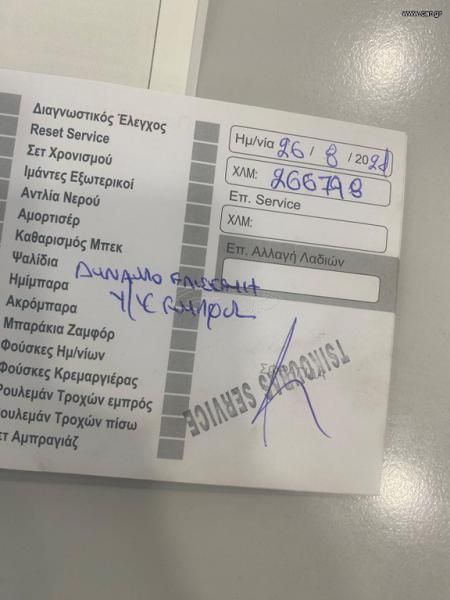 www.car.gr
Διαγνωστικός Έλεγχος
Reset Service
Σετ Χρονισμού
Ιμάντες Εξωτερικοί
Αντλία Νερού
Αμορτισέρ
Καθαρισμός Μπεκ
Ψαλίδια
Ημίμπαρα
Ακρόμπαρα
Μπαράκια Ζαμφόρ
Φούσκες Ημ/νίων
Φούσκες Κρεμαργιέρας
Ρουλεμάν Τροχών εμπρός
Ρουλεμάν Τροχών πίσω
Σετ Αμπραγιάζ
Ημ/νία 26 / 8 / 2021
ΧΛΜ: 266798
Επ. Service
ΧΛΜ:
Επ. Αλλαγή Λαδιών
ΔΥΝΑΜΟ ΕΠΙΣΚΕΥΗ
TSIKOURIS SERVICE